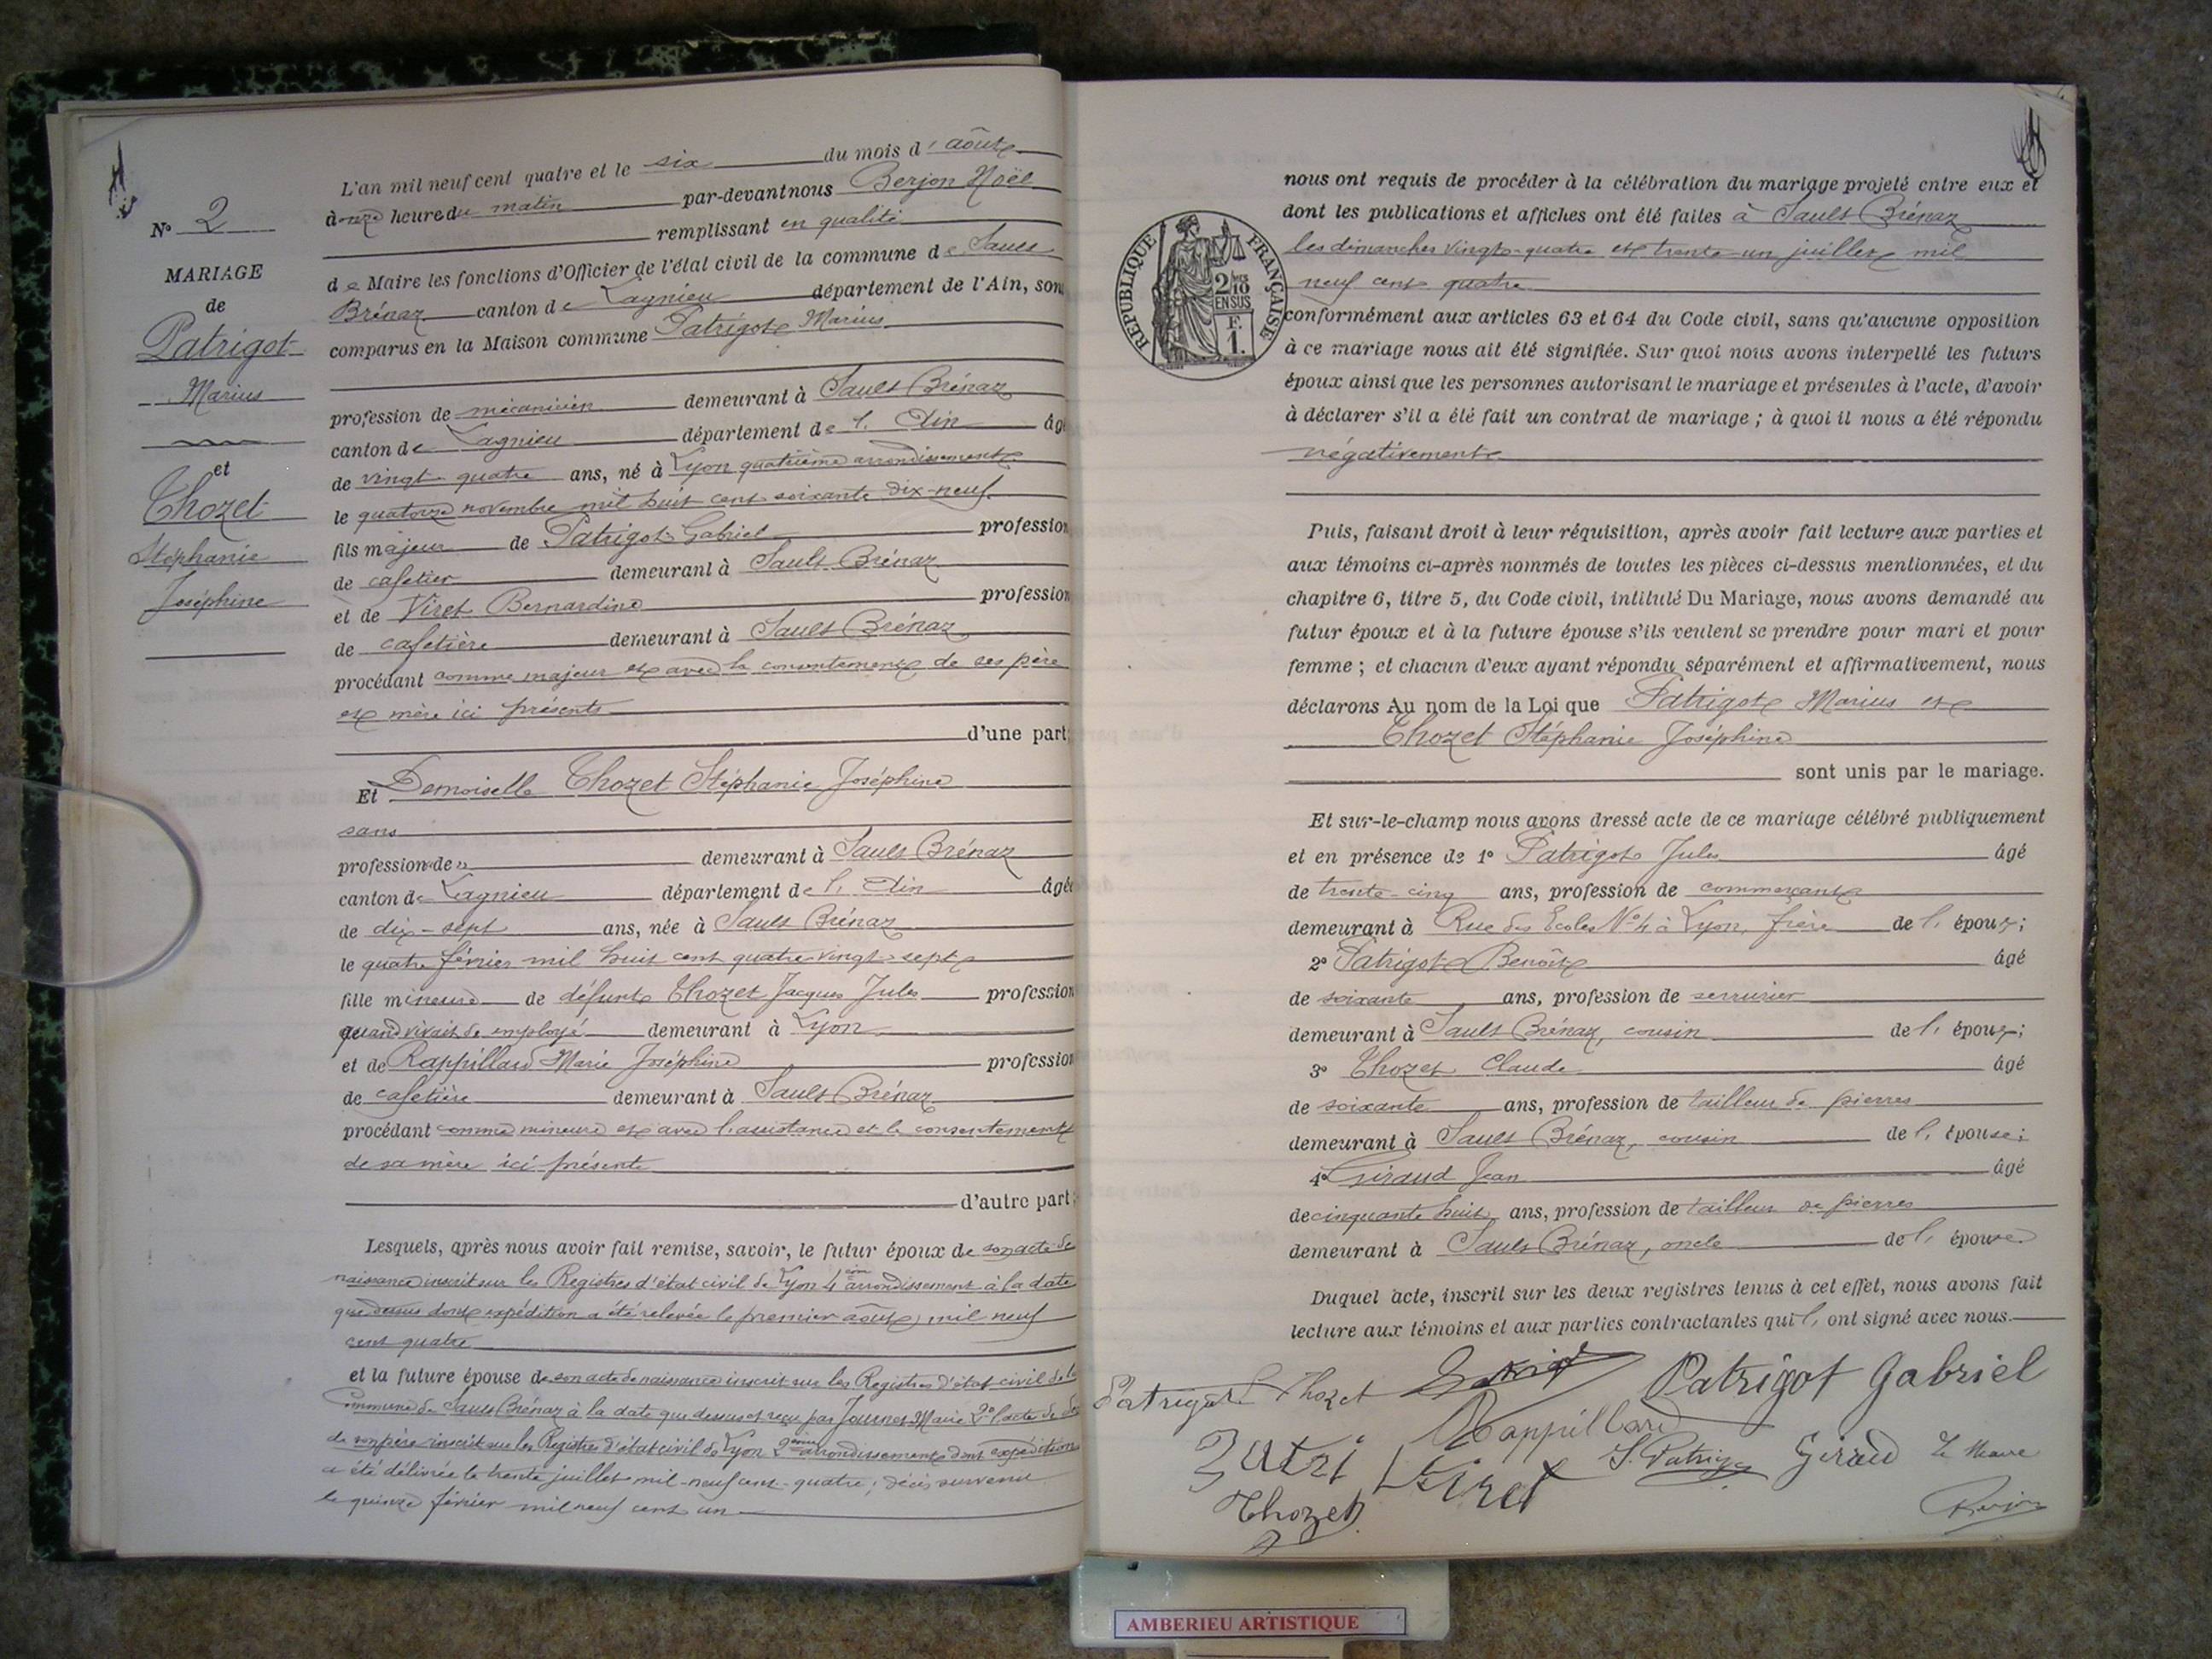 N° 2
MARIAGE
de
Patrigot
Marius
et
Thozet
Stéphanie
Joséphine
L'an mil neuf cent quatre et le six du mois d'août
à onze heure du matin par-devant nous Berjon Noël
remplissant en qualité
de Maire les fonctions d'Officier de l'état civil de la commune de Sault
Brénaz canton de Lagnieu département de l'Ain, sont
comparus en la Maison commune Patrigot Marius
profession de mécanicien demeurant à Sault Brénaz
canton de Lagnieu département de l'Ain âgé
de vingt-quatre ans, né à Lyon quatrième arrondissement
le quatorze novembre mil huit cent soixante dix-neuf
fils majeur de Patrigot Gabriel profession
de cafetier demeurant à Sault Brénaz
et de Viret Bernardine profession
de cafetière demeurant à Sault Brénaz
procédant comme majeur et avec le consentement de ses père
et mère ici présents
d'une part;
Et Demoiselle Thozet Stéphanie Joséphine
sans
profession de » demeurant à Sault Brénaz
canton de Lagnieu département de l'Ain âgée
de dix-sept ans, née à Sault Brénaz
le quatre février mil huit cent quatre vingt-sept
fille mineure de défunt Thozet Jacques Jules profession
quand vivait de employé demeurant à Lyon
et de Rappillard Marie Joséphine profession
de cafetière demeurant à Sault Brénaz
procédant comme mineure et avec l'assistance et le consentement
de sa mère ici présente
d'autre part;
Lesquels, après nous avoir fait remise, savoir, le futur époux de son acte de
naissance inscrit sur les Registres d'état civil de Lyon 4ème arrondissement à la date
que dessus dont expédition a été relevée le premier août mil neuf
cent quatre
et la future épouse de son acte de naissance inscrit sur les Registres d'état civil de la
Commune de Sault Brénaz à la date que dessus et reçu par Maire 2° l'acte de
de son père inscrit sur les Registres d'état civil de Lyon 2ème arrondissement dont expédition
a été délivrée le trente juillet mil-neuf cent-quatre; décès survenu
le quinze février mil neuf cent un
RÉPUBLIQUE FRANÇAISE
2/10
EN SUS
F.
1.
nous ont requis de procéder à la célébration du mariage projeté entre eux et
dont les publications et affiches ont été faites à Sault Brénaz
les dimanches vingt-quatre et trente-un juillet mil
neuf cent quatre
conformément aux articles 63 et 64 du Code civil, sans qu'aucune opposition
à ce mariage nous ait été signifiée. Sur quoi nous avons interpellé les futurs
époux ainsi que les personnes autorisant le mariage et présentes à l'acte, d'avoir
à déclarer s'il a été fait un contrat de mariage; à quoi il nous a été répondu
négativement
Puis, faisant droit à leur réquisition, après avoir fait lecture aux parties et
aux témoins ci-après nommés de toutes les pièces ci-dessus mentionnées, et du
chapitre 6, titre 5, du Code civil, intitulé Du Mariage, nous avons demandé au
futur époux et à la future épouse s'ils veulent se prendre pour mari et pour
femme; et chacun d'eux ayant répondu séparément et affirmativement, nous
déclarons Au nom de la Loi que Patrigot Marius et
Thozet Stéphanie Joséphine
sont unis par le mariage.
Et sur-le-champ nous avons dressé acte de ce mariage célébré publiquement
et en présence de 1° Patrigot Jules âgé
de trente-cinq ans, profession de commerçant
demeurant à Rue des Ecoles N° 4 à Lyon, frère de l'époux;
2° Patrigot Benoît âgé
de soixante ans, profession de serrurier
demeurant à Sault Brénaz, cousin de l'époux;
3° Thozet Claude âgé
de soixante ans, profession de tailleur de pierres
demeurant à Sault Brénaz, cousin de l'épouse;
4° Giraud Jean âgé
de cinquante huit ans, profession de tailleur de pierres
demeurant à Sault Brénaz, oncle de l'épouse
Duquel acte, inscrit sur les deux registres tenus à cet effet, nous avons fait
lecture aux témoins et aux parties contractantes qui l, ont signé avec nous.
Patrigot S Thozet Patrigot Gabriel
Rappillard
Viret J. Patrigot Giraud Le Maire
Thozet Berjon
AMBERIEU ARTISTIQUE